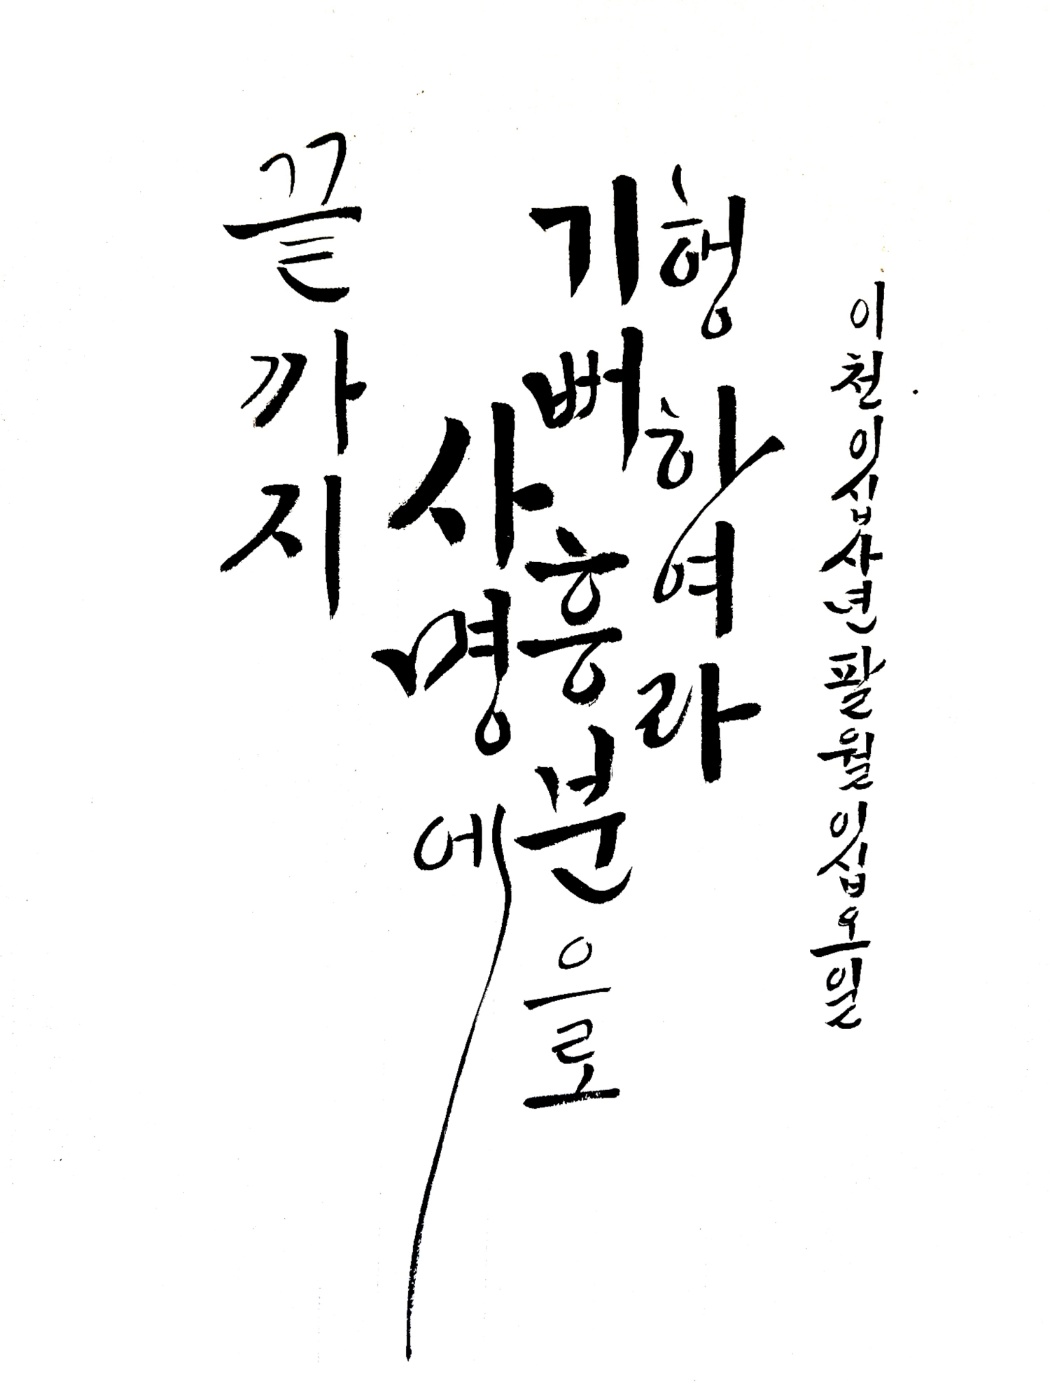 끝까지
사명에
기뻐흥분으로
행하여라
이천이십사년팔월이십오일